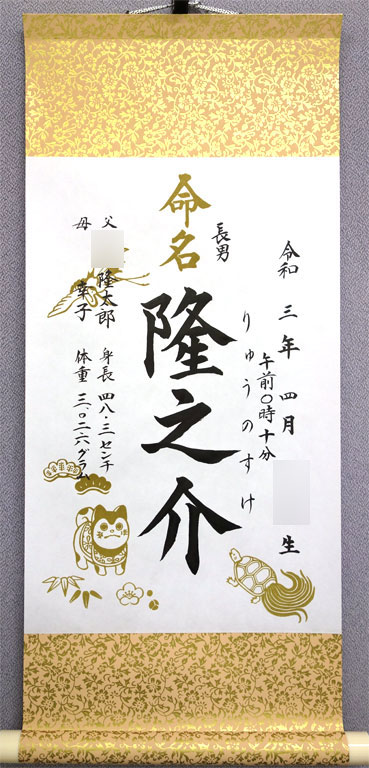 令和三年四月 生
午前〇時十分
りゅうのすけ
長男
命名
隆之介
父 隆太郎
母 幸子
身長 四八・三センチ
体重 三〇二六グラム